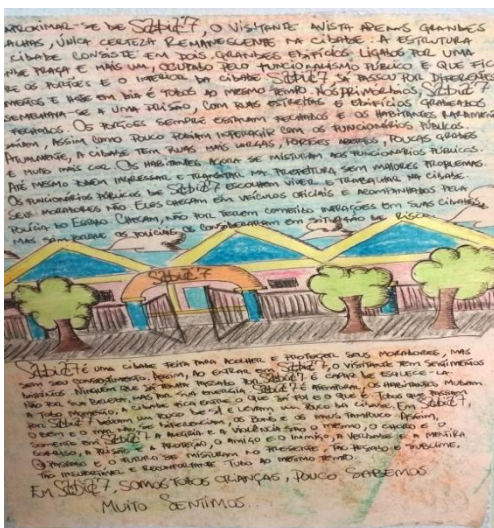 APROXIMAR-SE DE Sabiá 7, O VISITANTE AVISTA APENAS GRANDES
, ÚNICA CERTEZA REMANESCENTE NA CIDADE. A ESTRUTURA
CIDADE CONSISTE EM DOIS GRANDES EDIFÍCIOS LIGADOS POR UMA
PRAÇA E MAIS UM, OCUPADO PELO FUNCIONALISMO PÚBLICO E QUE FIC
RE OS PORTÕES E O INTERIOR DA CIDADE. Sabiá 7 JÁ PASSOU POR DIFERENTES
E HOJE EM DIA É TODOS AO MESMO TEMPO. NOS PRIMÓRDIOS, Sabiá 7
SEMELHAVA-SE A UMA PRISÃO, COM RUAS ESTREITAS E EDIFÍCIOS GRADEADOS
FECHADOS. OS PORTÕES SEMPRE ESTAVAM FECHADOS E OS HABITANTES RARAMENTE
, ASSIM COMO POUCO PODIAM INTERAGIR COM OS FUNCIONÁRIOS PÚBLICOS.
ATUALMENTE, A CIDADE TEM RUAS MAIS LARGAS, PORTÕES ABERTOS, POUCAS GRADES
MUITO MAIS COR. OS HABITANTES AGORA SE MISTURAM AOS FUNCIONÁRIOS PÚBLICOS.
ATÉ MESMO PODEM INGRESSAR E TRANSITAR NA PREFEITURA SEM MAIORES PROBLEMAS.
OS FUNCIONÁRIOS PÚBLICOS DE Sabiá 7 ESCOLHEM VIVER E TRABALHAR NA CIDADE.
SEUS MORADORES NÃO. ELES CHEGAM EM VEÍCULOS OFICIAIS E ACOMPANHADOS PELA
POLÍCIA DO ESTADO. CHEGAM, NÃO POR TEREM COMETIDO INFRAÇÕES EM SUAS CIDADES,
MAS SIM PORQUE OS POLICIAIS OS CONSIDERARAM EM SITUAÇÃO DE RISCO.
Sabiá 7
Sabiá 7 É UMA CIDADE FEITA PARA ACOLHER E PROTEGER SEUS MORADORES, MAS
SEM SEU CONSENTIMENTO. ASSIM, AO ENTRAR EM Sabiá 7, O VISITANTE TEM SENTIMENTOS
. NINGUÉM QUE JÁ TENHA PASSADO POR Sabiá 7 É CAPAZ DE ESQUECÊ-LA.
NÃO POR SUA BELEZA, MAS POR SUA ENERGIA. Sabiá 7 É AVENTURA, OS HABITANTES MUDAM
A TODO MOMENTO, A CIDADE FICA ENTRE O QUE JÁ FOI E O QUE É. TODOS QUE PASSAM
POR Sabiá 7 DEIXAM UM POUCO DE SI E LEVAM UM POUCO DA CIDADE. EM Sabiá 7,
O BEM E O MAL NÃO SE DIFERENCIAM, OS BONS E OS MAUS TAMPOUCO. ASSIM,
EM Sabiá 7 A ALEGRIA E A VIOLÊNCIA SÃO O MESMO, O CHORO E O
SORRISO, A PRISÃO E A PROTEÇÃO, O AMIGO E O INIMIGO, A VERDADE E A MENTIRA.
O PASSADO E O FUTURO SE MISTURAM NO PRESENTE, TÃO PESADO E SUBLIME,
TÃO E RECONFORTANTE TUDO AO MESMO TEMPO.
EM Sabiá 7, SOMOS TODOS CRIANÇAS, POUCO SABEMOS
MUITO SENTIMOS...